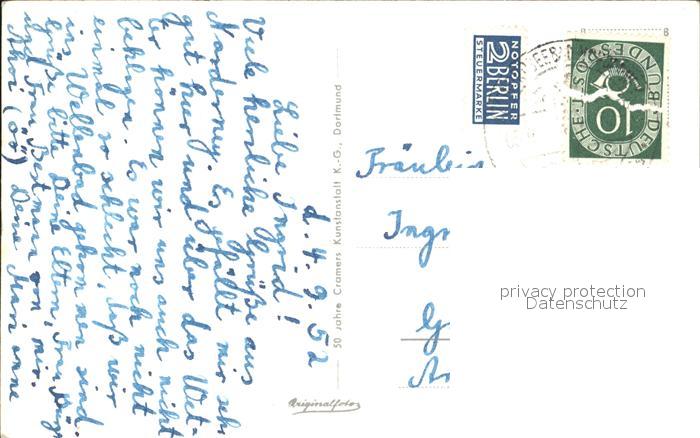 d. 4. 9. 52
Liebe Ingrid!
Viele herzliche Grüße aus
Norderney. Es gefällt mir sehr
gut hier und über das Wet-
ter können wir uns auch nicht
beklagen. Es war noch nicht
einmal so schlecht, daß wir
ins Wellenbad gekommen sind.
Grüße bitte Deine Eltern, Frau
und Frau von mir.
Ahoi Deine
50 Jahre Cramers Kunstanstalt K.-G., Dortmund
Originalfoto
NOTOPFER
2 BERLIN
STEUERMARKE
DEUTSCHE BUNDESPOST
10
Fräulein
Ingr
privacy protection
Datenschutz